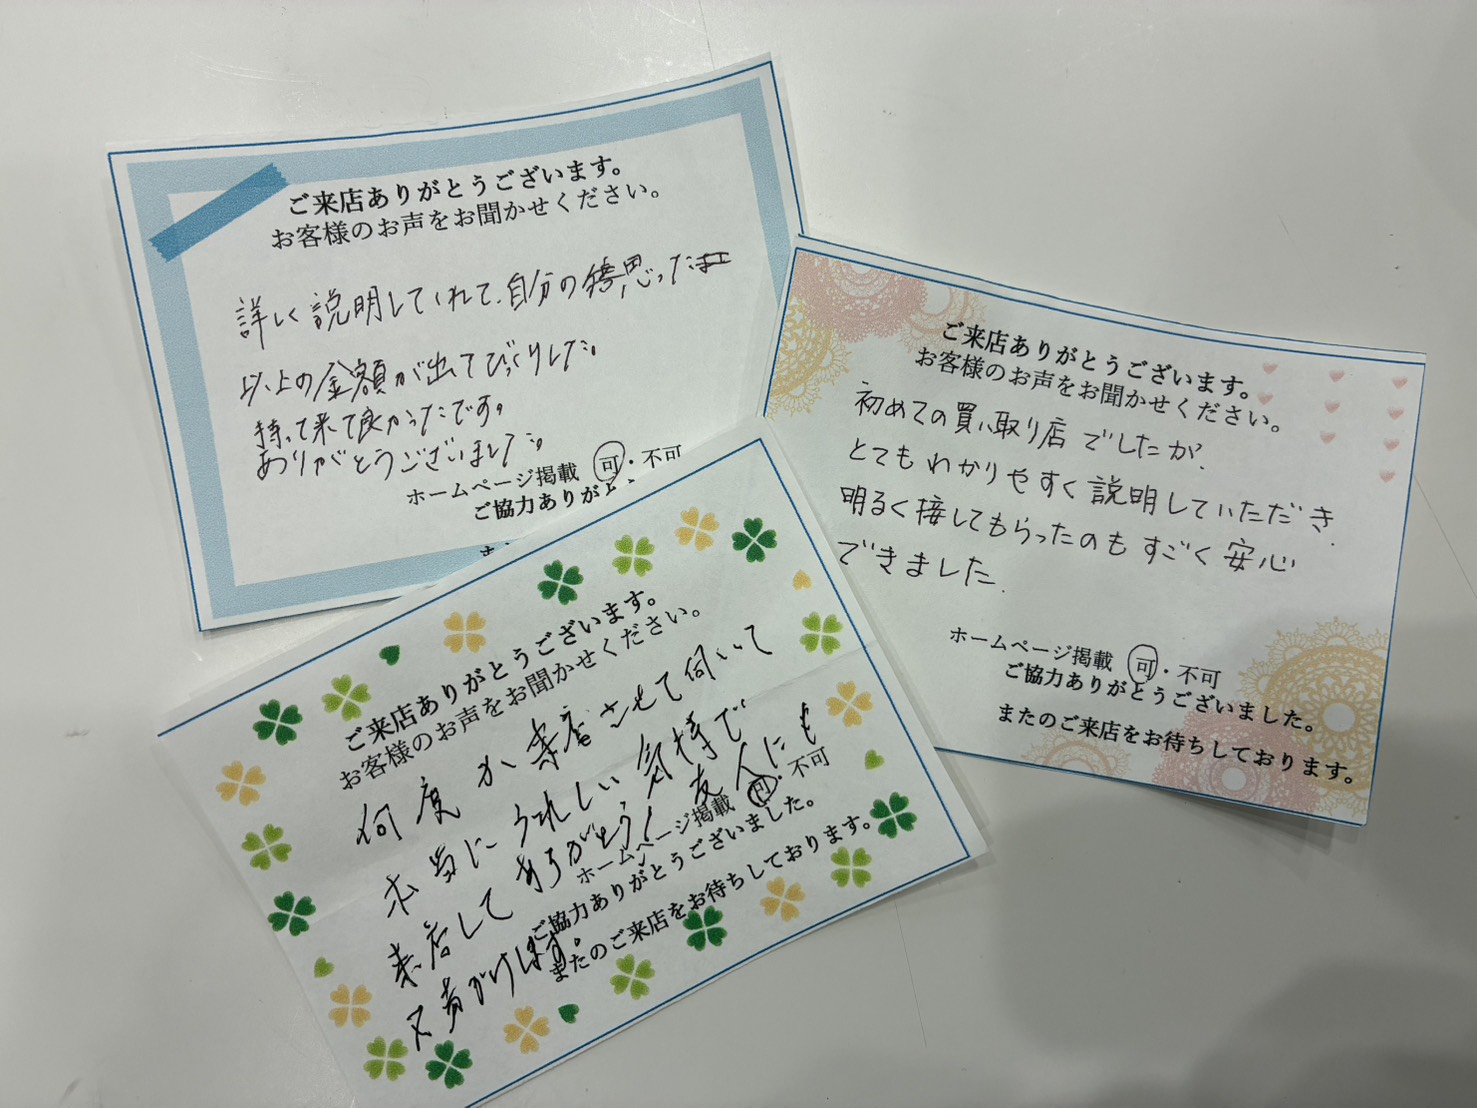 ご来店ありがとうございます。
お客様のお声をお聞かせください。
詳しく説明してくれて、自分の思った
以上の金額が出てびっくりした。
持って来て良かったです。
ありがとうございました。
ホームページ掲載 可・不可
ご協力ありがと
ご来店ありがとうございます。
お客様のお声をお聞かせください。
初めての買い取り店でしたが、
とてもわかりやすく説明していただき、
明るく接してもらったのもすごく安心
できました。
ホームページ掲載 可・不可
ご協力ありがとうございました。
またのご来店をお待ちしております。
ご来店ありがとうございます。
お客様のお声をお聞かせください。
何度か来店させて伺いて
本当にうれしい気持で
来店してありがとう！友人にも
又声がけます。
ホームページ掲載 可・不可
ご協力ありがとうございました。
またのご来店をお待ちしております。